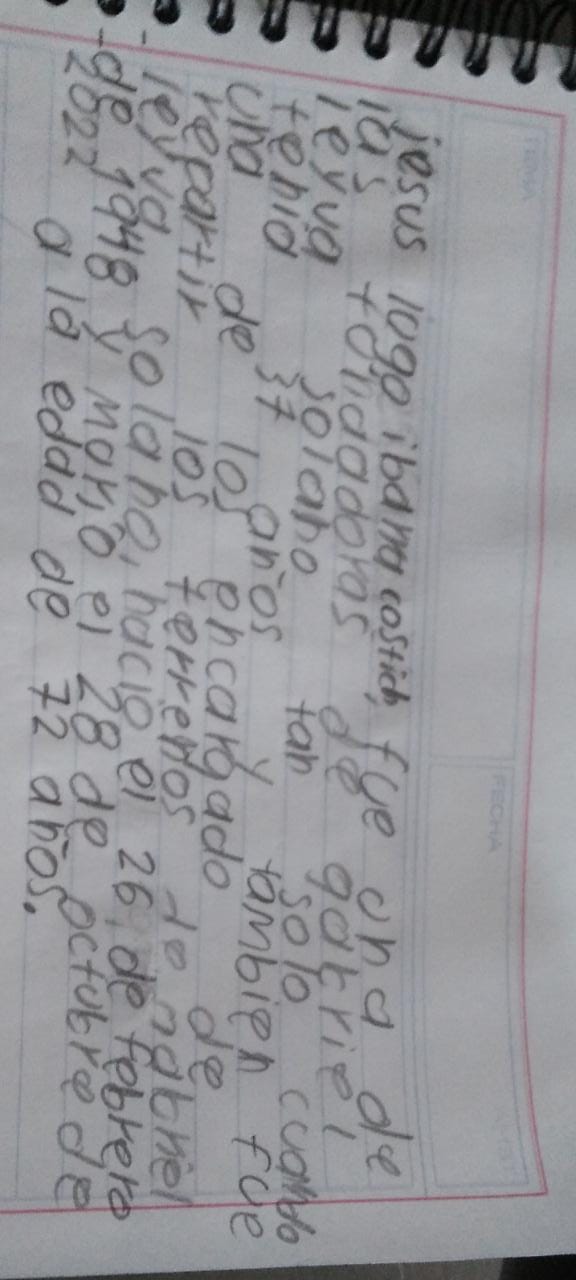 TEMA
FECHA
jesus lugo ibarra costich, fue una de
las fundadoras de gabriel
leyva solano tan solo cuando
tenia 37 años y tambien fue
una de los encargado de
repartir los terrenos de gabriel
leyva solano, nacio el 26, de febrero
de 1948 y murio el 28 de octubre de
2022 a la edad de 72 años.